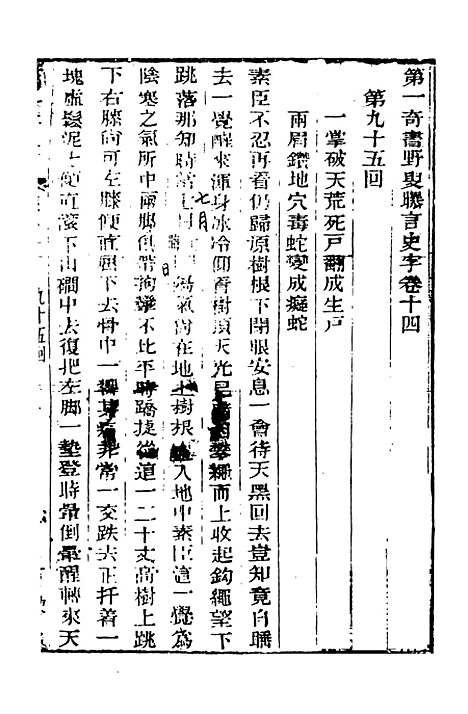 第一奇書野叟曝言史字卷十四
第九十五回
一掌破天荒死戸翻成生戸
兩眉鑽地穴毒蛇變成癡蛇
素臣不忍再看仍歸原樹根下閉眼安息一會待天黑回去豈知竟自睡
去一覺醒來渾身冰冷仰看樹頂天光已繩而上收起鈎繩望下
跳落那知時當七月陽氣尙在地上樹根入地中素臣這一覺爲
陰寒之氣所中兩脚俱帶拘攣不比平時蹻捷從這一二十丈高樹上跳
下右膝尙可左膝便直興下去骨中一非常一交跌去正扞着一
塊虛鬆泥土便直滚下山澗中去復把左脚一墊登時暈倒暈醒轉來天
九十五回